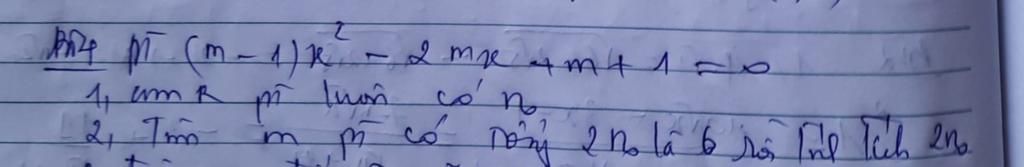 Bài 4 pт (m - 1)x² - 2mx + m + 1 = 0
1, cmR pт luôn có n₀
2, Tìm m pт có tổng 2n₀ là 6 rồi tính tích 2n₀